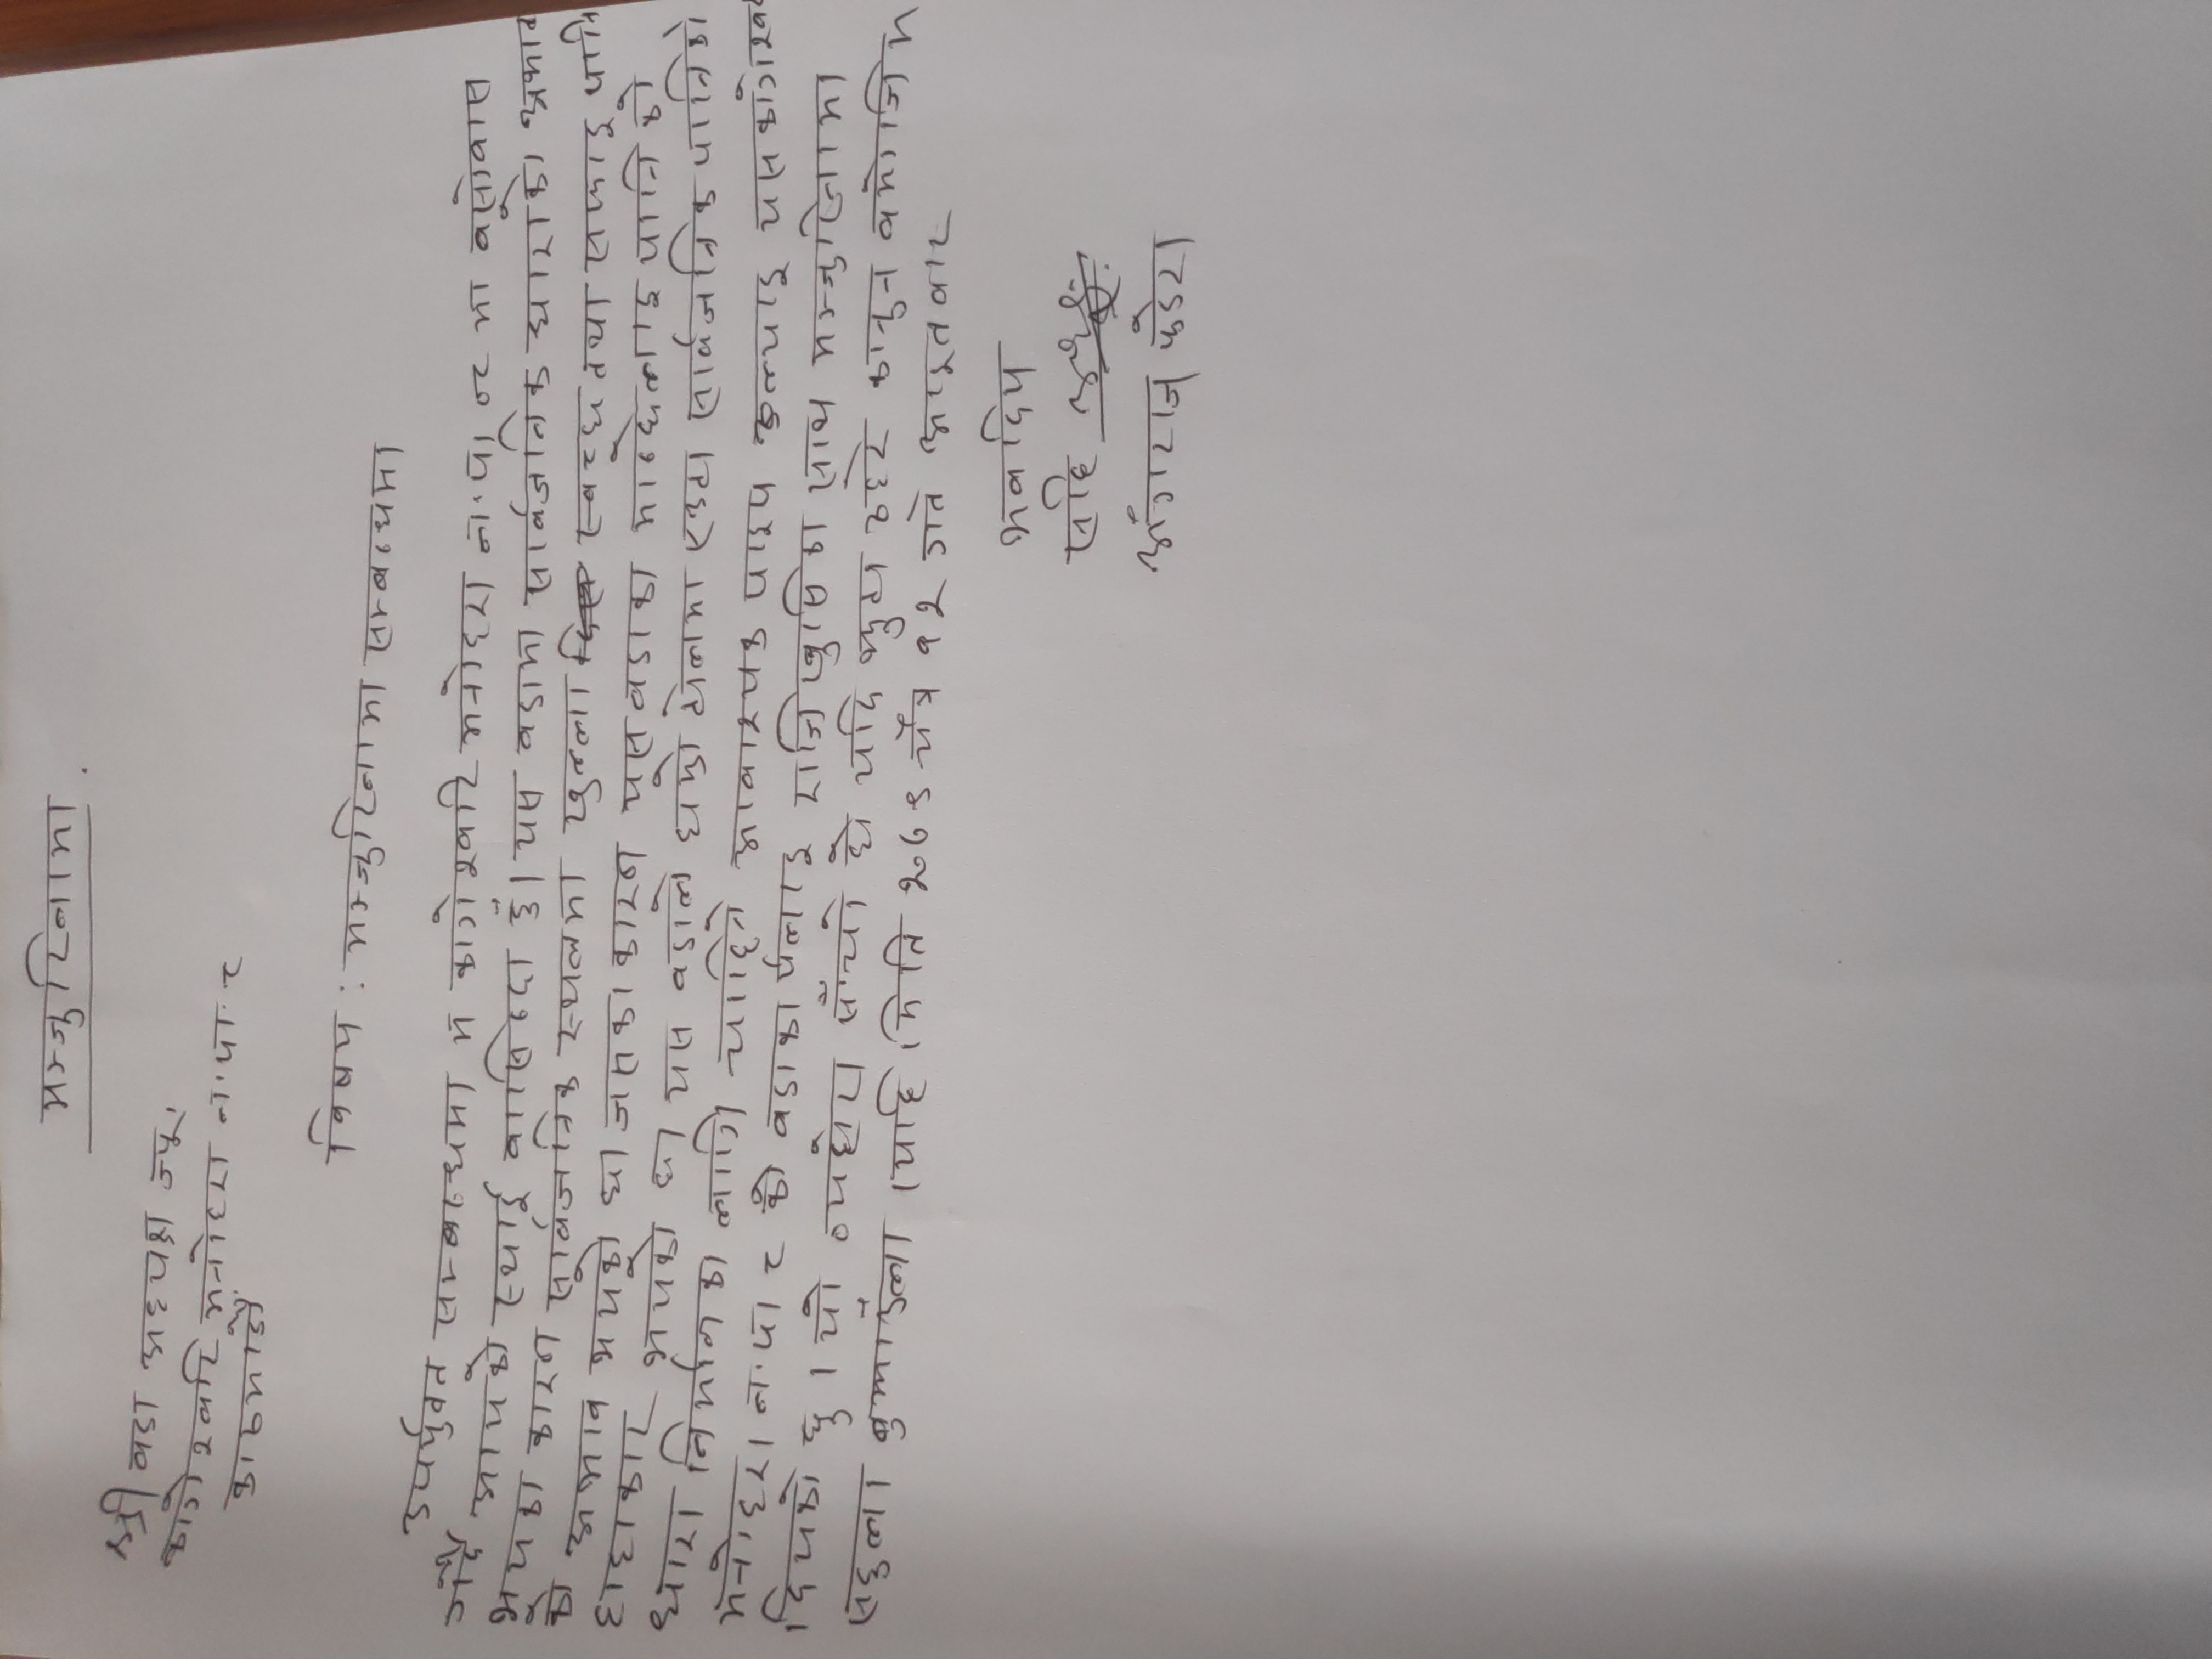 मञ्जुरिनामा.
श्री वडा अध्यक्ष ज्यू,
कागेश्वरि मनोहरा न.पा. ८
काठमाडौं
विषय : मञ्जुरिनामा सम्बन्धमा
उपर्युक्त सम्बन्धमा म कागेश्वरि मनोहरा न.पा ०८ मा बसोवास
गर्दै आएको स्थाई वासिन्दा हुँ। यस वडामा सार्वजनिक धाराको अभाव
भएका कारन सार्वजनिक स्थलमा खुल्ला स्वच्छ तथा सफाइ पानि
को अभाव भएको छ। जसका कारन यस वडाका मान्छेलाइ पानि को
हाहाकार भएको छ। यस वडाले छमो टोलमा एउटा सार्वजनिक पानिको
धारा निर्मानका लागि चाहिने आवाश्यक पाइप यस कागेश्वरि
मनोहरा न.पा ८ को वडाकार्यलाइ राजिखुसिका साथ मञ्जुरिनामा
दिएको छु। यो व्यहोरा साँचो हो यदि झुटा ठहरे कानुन बमोजिम
सहुला बुझाउँला। याहि मिति २०७९ चैत्र १२ गते आइतवार
भवदिय
सहि
अंगराज फडेरा